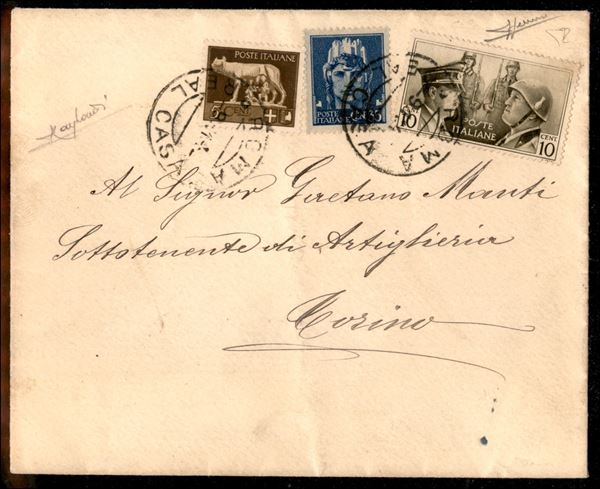 POSTE ITALIANE
5 CENT
POSTE ITALIANE CENT. 35
POSTE ITALIANE
10 CENT 10
ROMA
REAL CASA
ROMA
Al Signor Gaetano Manti
Sottotenente di Artiglieria
Torino